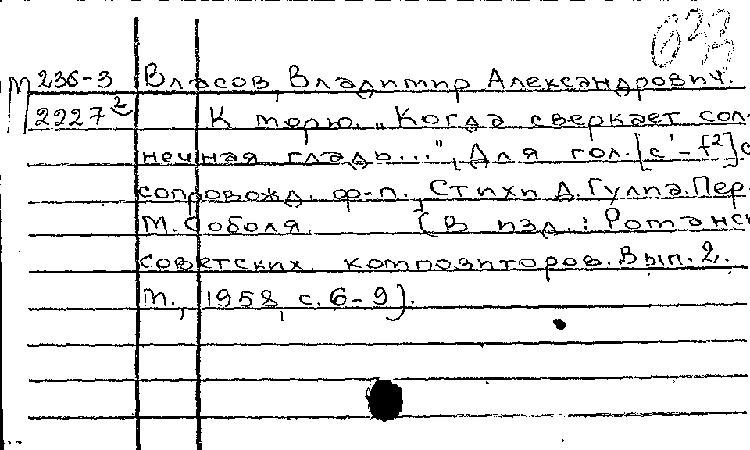 М 236-3 Власов, Владимир Александрович.
2227² К морю. „Когда сверкает сол-
нечная гладь...", Для гол. [c¹-f²] с
сопровожд. ф-п., Стихи Д. Гулиа. Пер.
М. Соболя. [В изд.: Романсы
советских композиторов. Вып. 2.
М., 1958, с. 6-9].